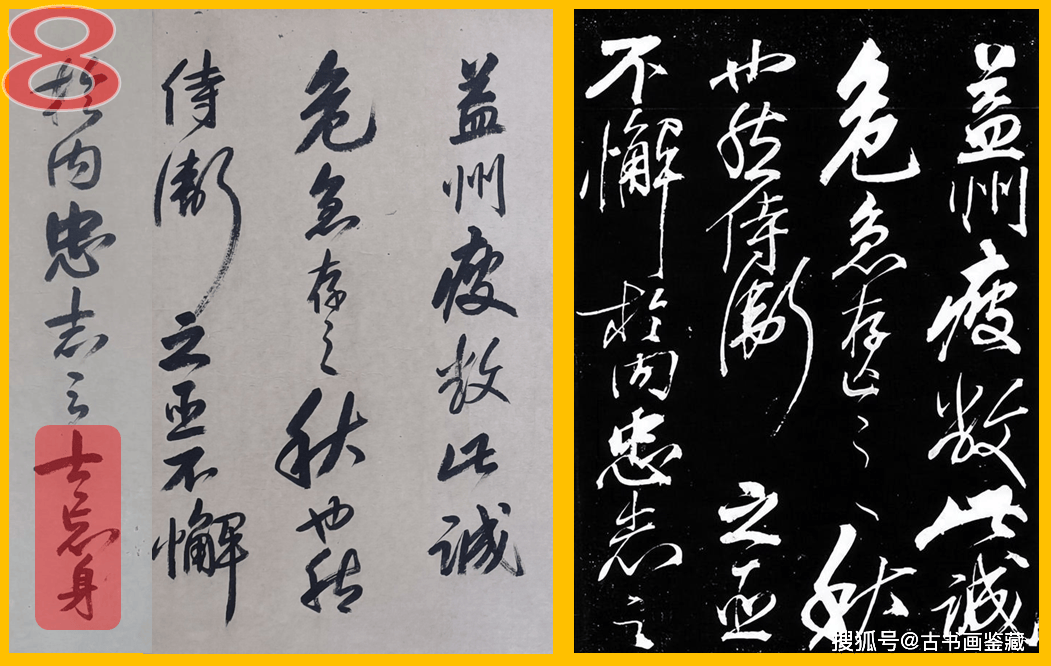 8
益州疲敝此誠
危急存之秋也然
侍衛之臣不懈
於内忠志之士忘身
益州疲敝此誠
危急存亡之秋
也然侍衛之臣
不懈於内忠志之
搜狐号@古书画鉴藏